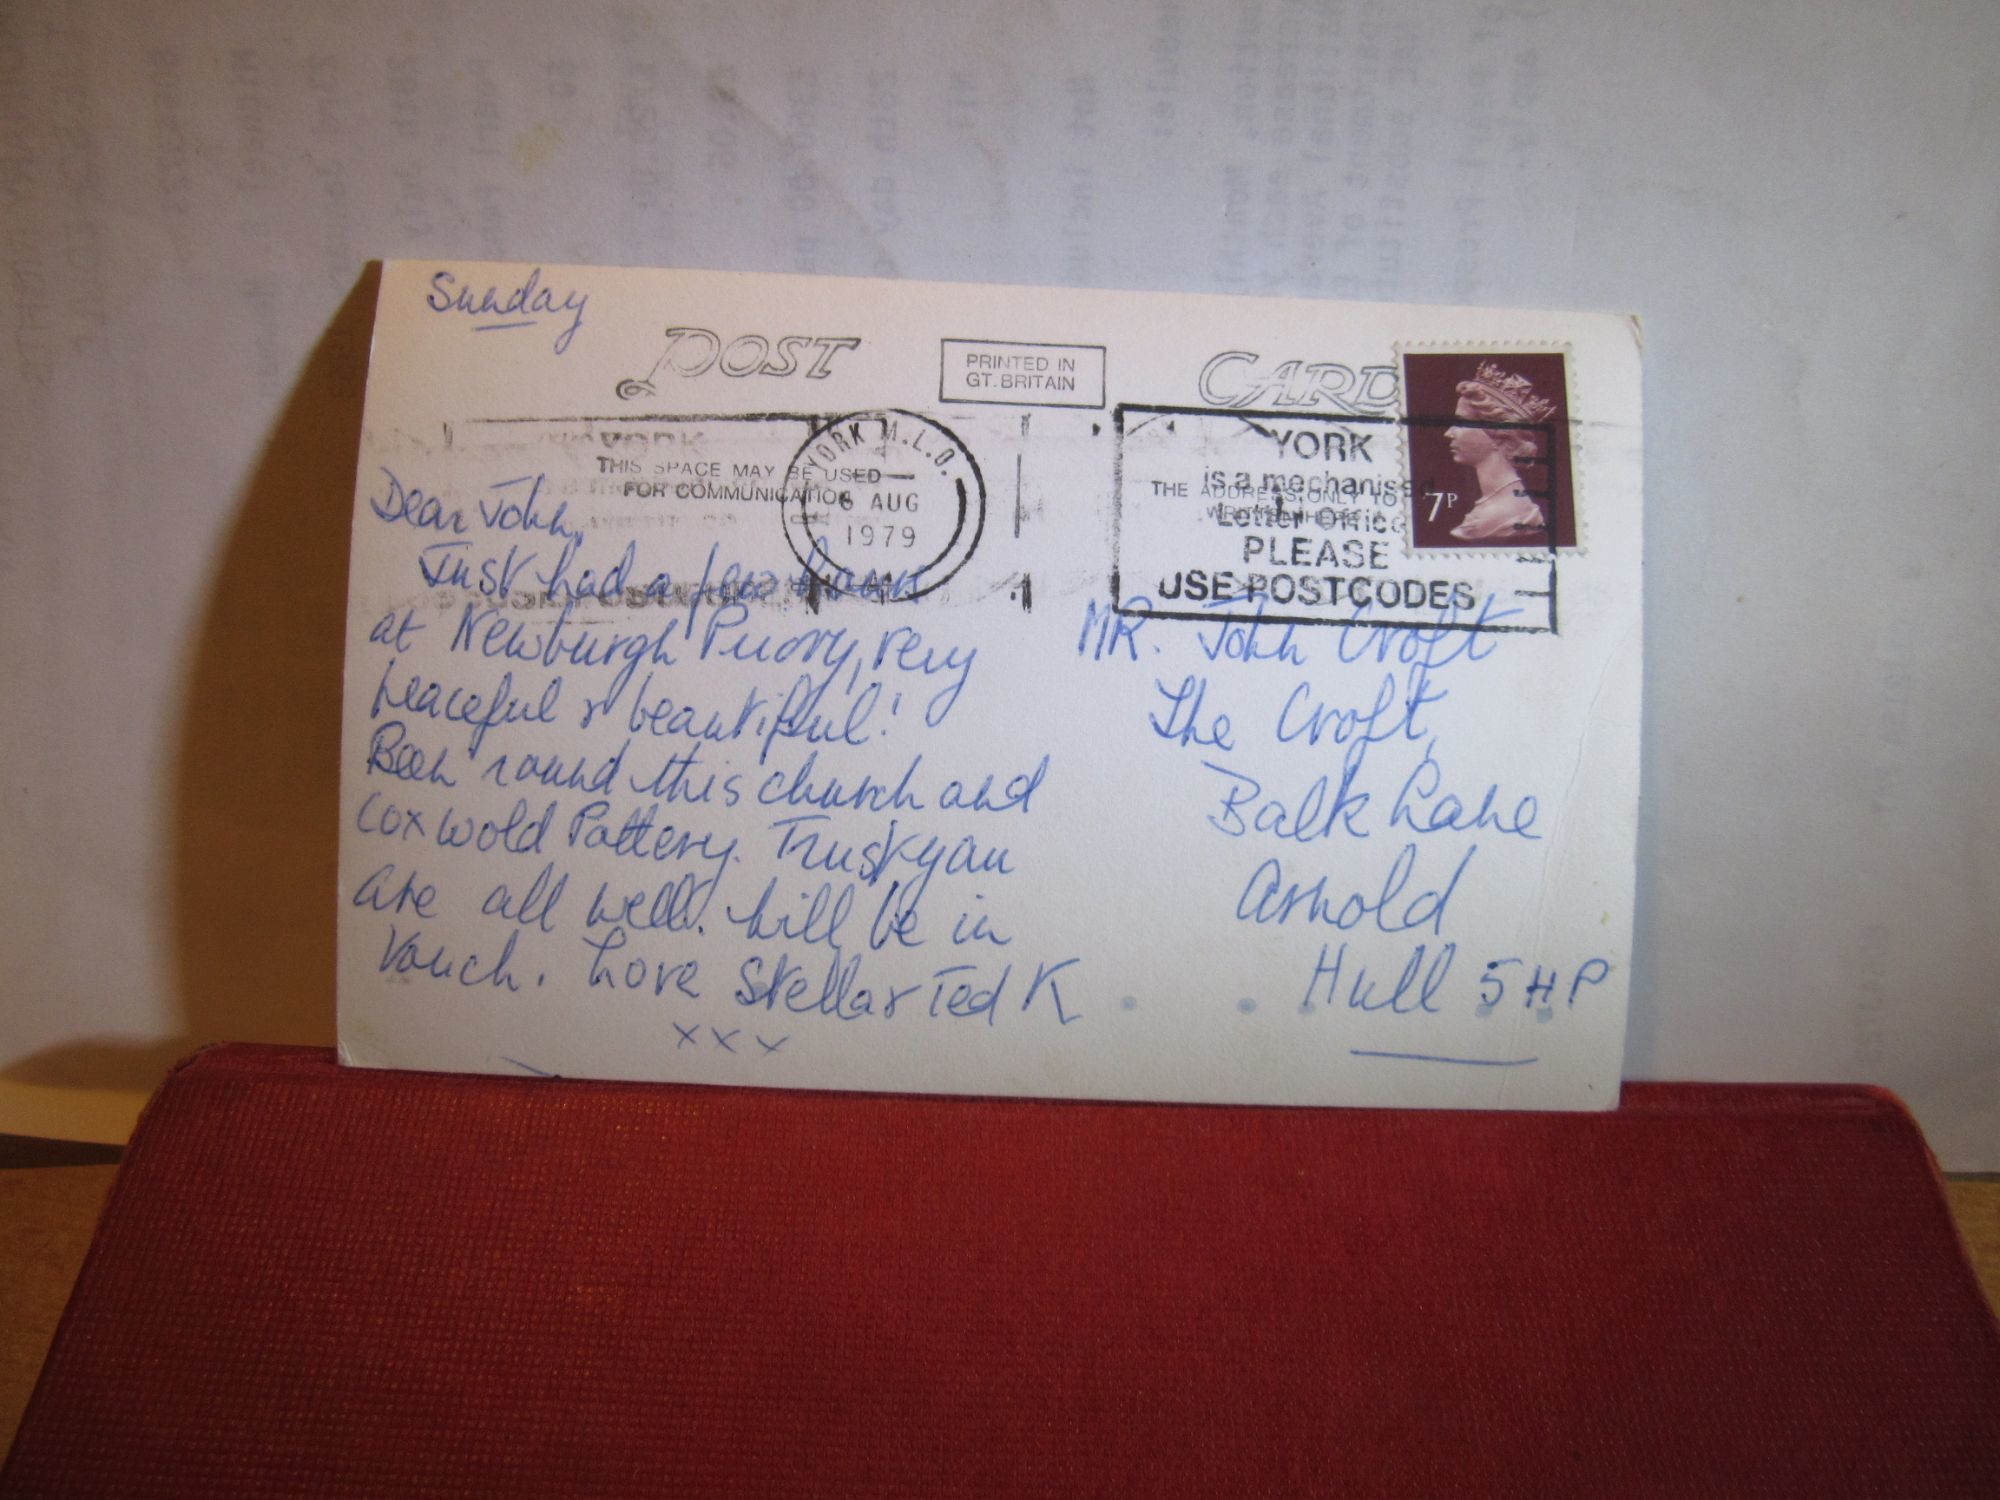 Sunday
POST CARD
PRINTED IN
GT. BRITAIN
THIS SPACE MAY BE USED
FOR COMMUNICATION
THE ADDRESS ONLY TO
YORK M.L.O.
6 AUG
1979
YORK
is a mechanised
Letter Office
PLEASE
USE POSTCODES
7P
Dear John,
Just had a few hours
at Newburgh Priory, very
peaceful & beautiful!
Been round this church and
Coxwold Pottery. Trust you
are all well. Will be in
touch. Love Stella & Ted K
xxx
MR. John Croft
The Croft,
Balk Lane
Arnold
Hull 5HP